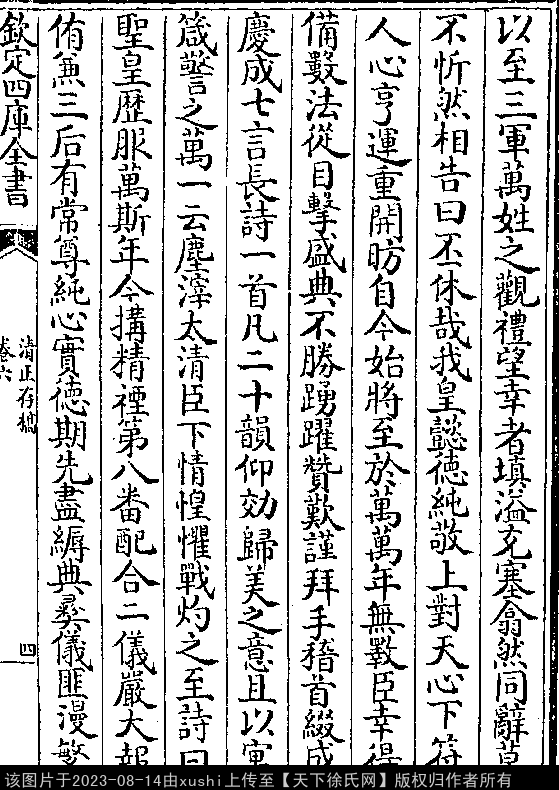 以至三軍萬姓之觀禮望幸者填溢充塞翕然同辭莫
不忻然相告曰丕休哉我皇懿德純敬上對天心下符
人心亨運重開昉自今始將至於萬萬年無斁臣幸得
備數法從目擊盛典不勝踴躍贊歎謹拜手稽首綴成
慶成七言長詩一首凡二十韻仰効歸美之意且以寓
箴警之萬一云塵滓太清臣下情惶懼戰灼之至詩曰
聖皇歴服萬斯年今搆精禋第八番配合二儀嚴大報
侑兼三后有常尊純心實德期先盡縟典彛儀匪漫繁
欽定四庫全書
清正存稿
卷六
四
该图片于2023-08-14由xushi上传至【天下徐氏网】版权归作者所有